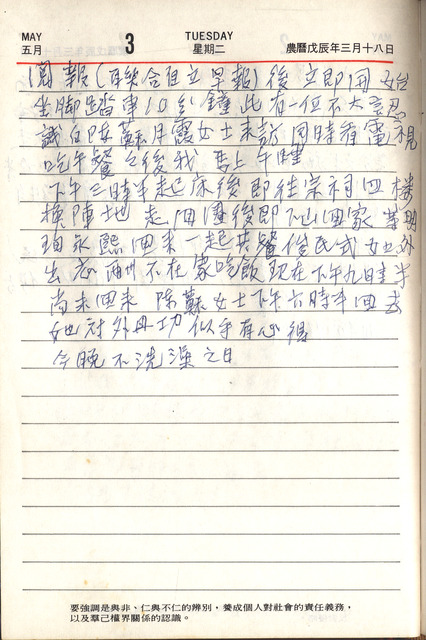 MAY
五月
3
TUESDAY
星期二
農曆戊辰年三月十八日
閱報(聯合自立早報)後立即開始
坐脚踏車10分鐘 此有一位不大
識白陳蘇月霞女士來訪 同時看電視
吃午餐 之後我馬上午睡
下午三時半起床後即往宗祠四樓
陳 走 後即下山回家
回來一起共餐 女也外
出 不在家吃飯 現在下午九時半
尚未回來 陳蘇女士下午六時半回去
她對外丹功似乎有心得
今晚不洗澡之日
要強調是與非、仁與不仁的辨別，養成個人對社會的責任義務，
以及羣己權界關係的認識。